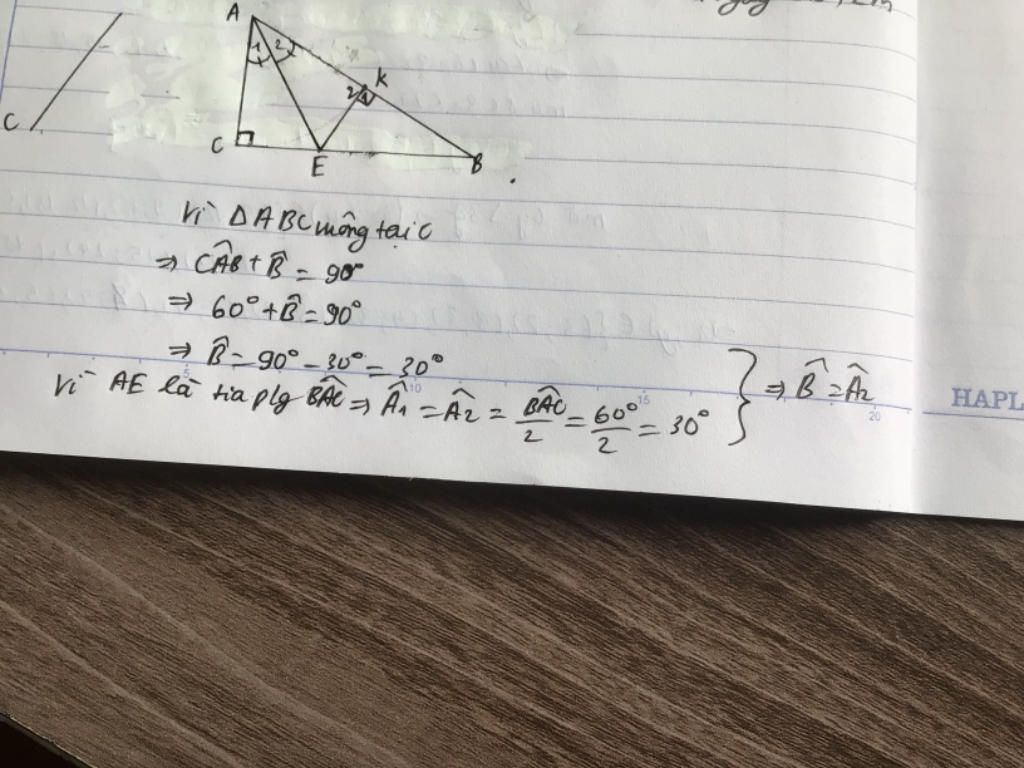 A
1 2
K
2 1
C
C
E
B
Vì ΔABC vuông tại C
⇒ CÂB + B̂ = 90°
⇒ 60° + B̂ = 90°
⇒ B̂ = 90° - 30° = 30°
Vì AE là tia plg BÂC ⇒ Â1 = Â2 = BÂC/2 = 60°/2 = 30°
⇒ B̂ = Â2
5 10 15 20
HAPL